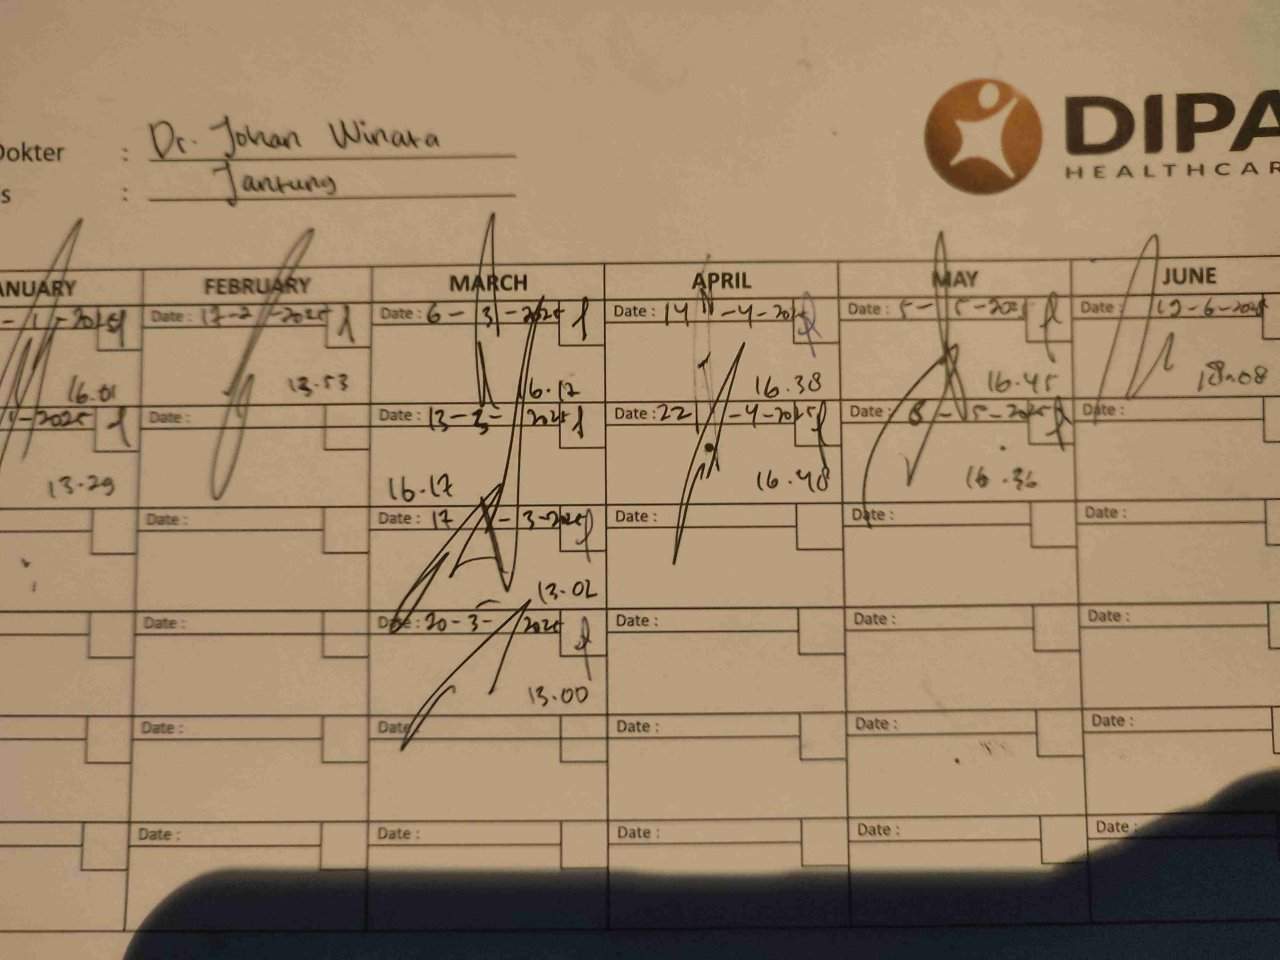 DIPA
HEALTHCAR
Dokter : Dr. Johan Winata
s : Jantung
ANUARY FEBRUARY MARCH APRIL MAY JUNE
-1-2025 Date : 17-2-2025 Date : 6-3-2025 Date : 14-4-2025 Date : 5-5-2025 Date : 12-6-2025
16.01 13.53 16.12 16.38 16.45 18.08
-2025 Date : Date : 13-3-2025 Date : 22-4-2025 Date : 8-5-2025 Date :
13.29 16.17 16.48 16.36
Date : Date : 17-3-2025 Date : Date : Date :
13.02
Date : Date : 20-3-2025 Date : Date : Date :
13.00
Date : Date Date : Date : Date :
Date : Date : Date : Date : Date :